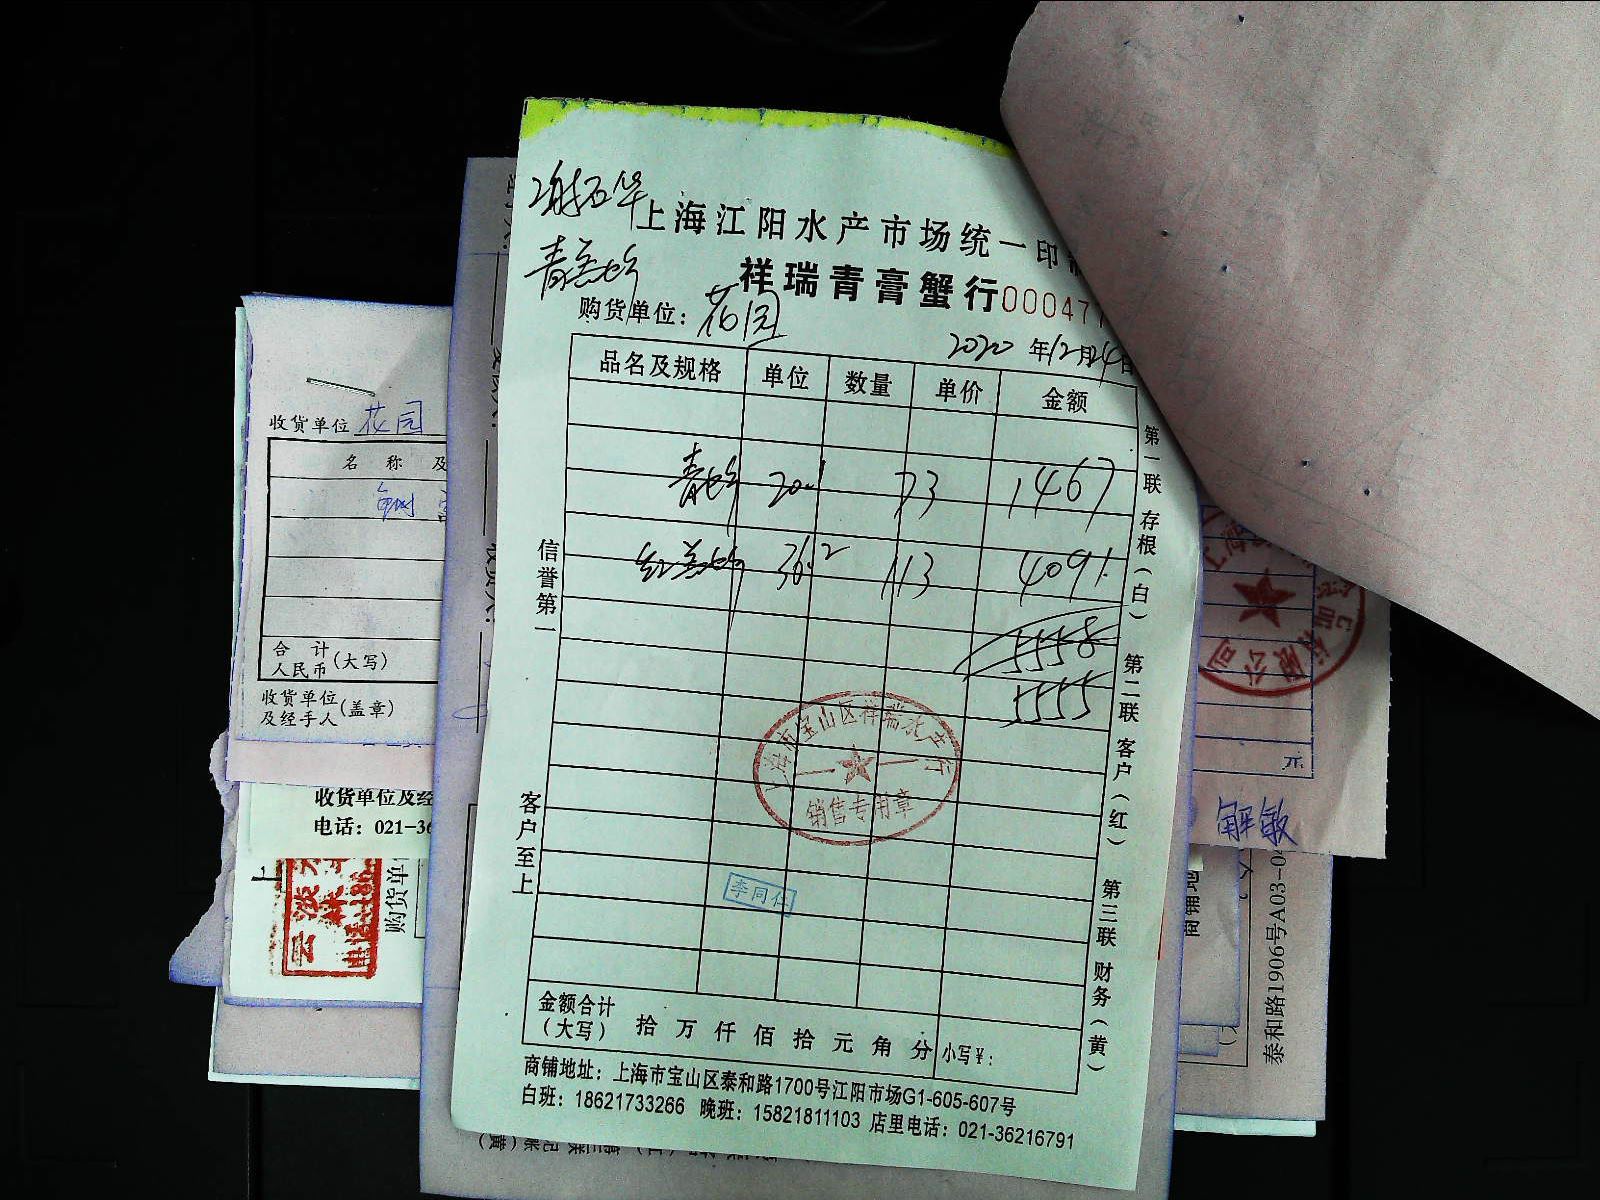 上海江阳水产市场统一印
祥瑞青膏蟹行 000047
购货单位：花园
2020年12月24日
品名及规格 单位 数量 单价 金额
青 20.1 73 1467
红膏 36.2 113 4091
5558
5555
信誉第一
客户至上
第一联 存根（白） 第二联 客户（红） 第三联 财务（黄）
上海市宝山区祥瑞水产行
销售专用章
李同仁
金额合计（大写） 拾 万 仟 佰 拾 元 角 分 小写¥：
商铺地址：上海市宝山区泰和路1700号江阳市场G1-605-607号
白班：18621733266 晚班：15821811103 店里电话：021-36216791
收货单位 花园
名 称 及
合 计
人民币（大写）
收货单位
及经手人（盖章）
收货单位及经
电话：021-36
购货单
有限公司
元
解敏
泰和路1906号A03-0